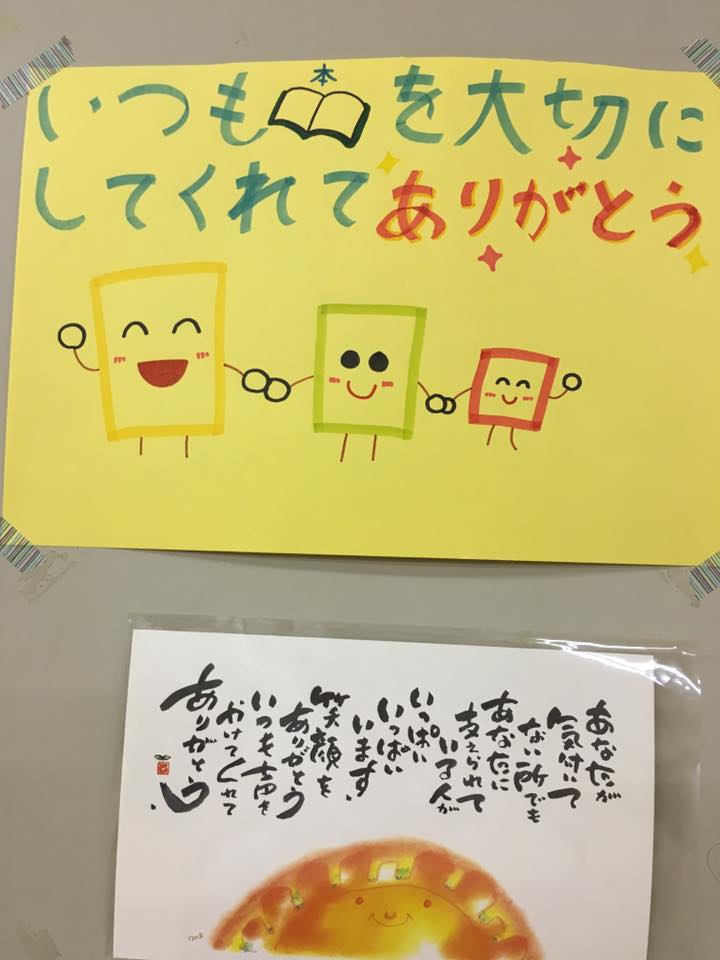 いつも本を大切に
してくれてありがとう
あなたが
気付いて
ない所でも
あなたに
支えられて
いる人が
いっぱい
いっぱい
います、
笑顔を
ありがとう
いつも声を
かけてくれて
ありがとう、